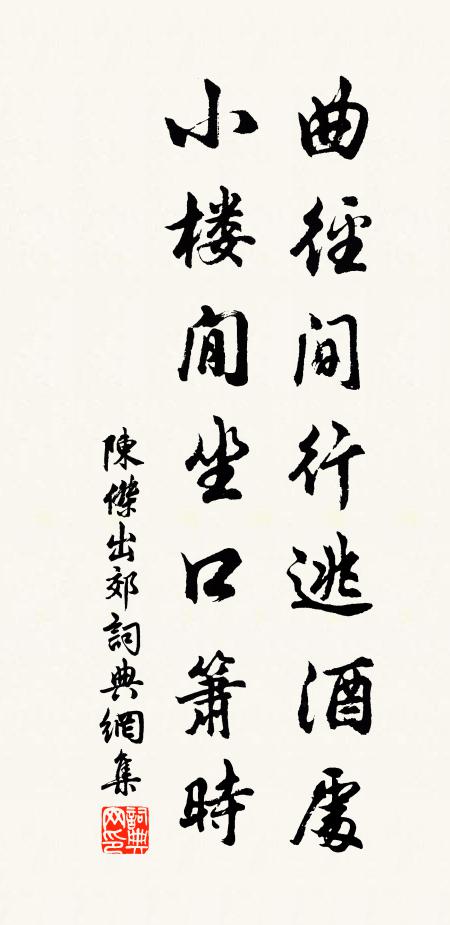 曲徑間行逃酒處
小楼閒坐口簫時
陳傑出郊詞典網集
詞典网印